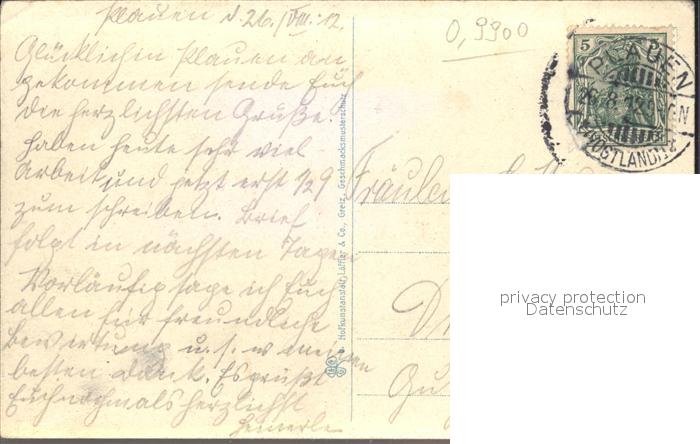 Plauen d. 26./VIII. 12.
0,9900
Glücklich in Plauen an
gekommen sende Euch
die herzlichsten Grüße.
Haben heute sehr viel
Arbeit und jetzt erst 1/2 9
zum schreiben. Brief
folgt in nächsten Tagen
Vorläufig sage ich Euch
allen für freundliche
Bewirtung u.s.w meinen
besten Dank. Es grüßt
Euch nochmals herzlichst
Hofkunstanstalt Löffler & Co., Greiz, Geschmacksmusterschutz
5
PLAUEN
26.8.12
(VOGTLAND)
Fräulein
Gu
privacy protection
Datenschutz